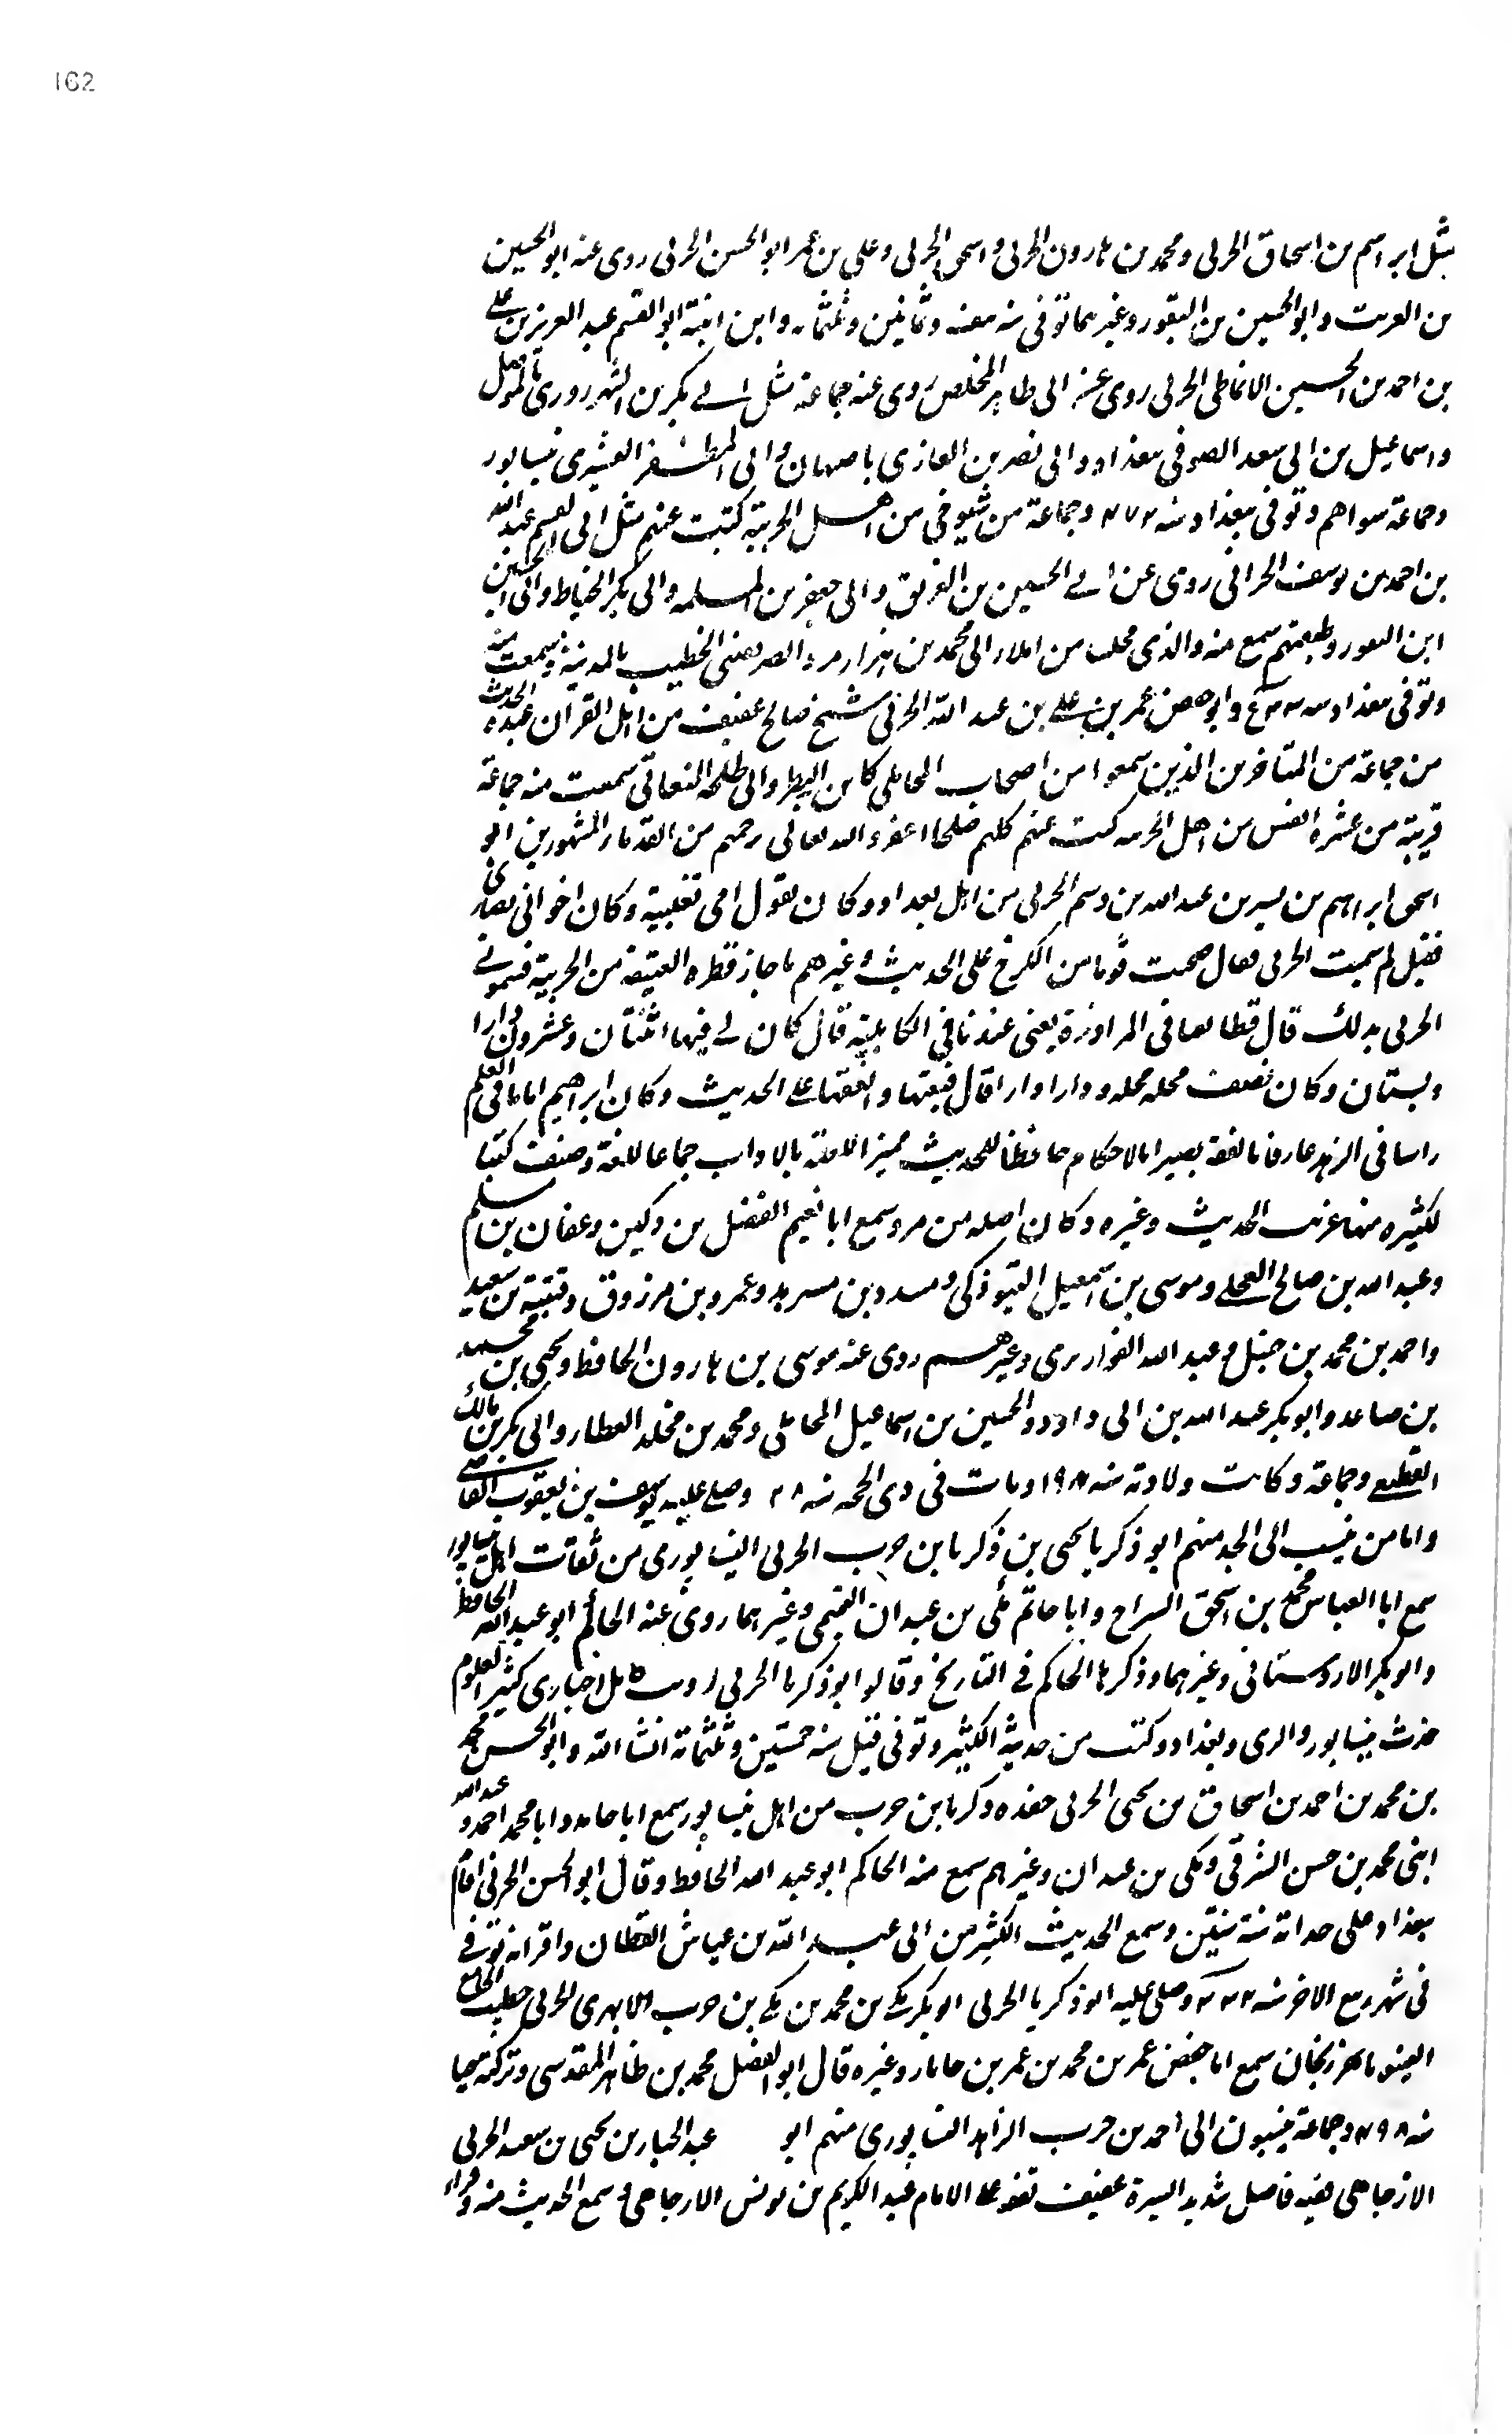 162
مثل ابراهيم بن اسحاق الحربى ومحمد بن هارون الحربى و اسحق الحربى وعلى بن عمر ابو الحسن الحربى روى عنه ابو الحسين
من وابو الحسين بن النقور وغيرهما توفى سنه وثمانين وثلثمائه وابن ابنته ابو القسم عبد العزيز بن على
بن احمد بن الحسين الانماطى الحربى روى عن ابى طاهر المخلص روى عنه جماعة مثل ابى بكر بن الشهرزورى بالموصل
واسماعيل بن ابى سعد الصوفى ببغداد وابى نصر بن الغازى باصبهان وابى المظفر القشيرى بنيسابور
وجماعة سواهم وتوفى ببغداد سنه وجماعة من شيوخى من اهل الحربية كتبت عنهم مثل ابى القسم عبد الله
بن احمد بن يوسف الحرانى روى عن ابى الحسين بن الغريق وابى جعفر بن المسلمه وابى بكر الخياط وابى الحسين
ابن النقور وطبقتهم سمع منه والذى مجلسا من املاء ابى محمد بن هزارمرد الصريفينى الخطيب بالمدينة وسمعت منه
وتوفى ببغداد وابو حفص عمر بن على بن عبد الله الحربى شيخ صالح عفيف من اهل القران عنده الحديث
من جماعة من المتاخرين الذين سمعوا من اصحاب المحاملى كابن البطر وابى طلحة النعالى سمعت منه جماعة
قريبة من عشرة انفس من اهل الحربيه كتبت عنهم كلهم صلحاء الله تعالى رحمهم من القدماء المشهورين ابو
اسحق ابراهيم بن بسير بن عبد الله بن دسم الحربى من اهل بغداد وكان يقول امى تغلبية وكان اخوالى نصارى
فقيل لم سميت الحربى فقال صحبت قوما من الكرخ على الحديث وغيرهم ما جاز قنطره العتيقه من الحربية فسمونى
الحربى بذلك قال فى المراوزة يعنى عندنا فى الكابلية قال كان لى فيها اثنتان وعشرون دارا
وبستان وكان نصف محله محله ودارا دارا قال فبعتها وانفقتها على الحديث وكان ابراهيم اماما فى العلم
راسا فى الزهد عارفا بالفقه بصيرا بالاحكام حافظا للحديث مميزا بالاداب جماعا للغة وصنف كتبا
كثيره منها غريب الحديث وغيره وكان اصله من مرو سمع ابا نعيم الفضل بن دكين وعفان بن مسلم
وعبد الله بن صالح العجلى وموسى بن اسمعيل التبوذكى ومسدد بن مسرهد وعمرو بن مرزوق وقتيبة بن سعيد
واحمد بن محمد بن حنبل وعبيد الله القواريرى وغيرهم روى عنه موسى بن هارون الحافظ ويحيى بن محمد
بن صاعد وابو بكر عبد الله بن ابى داود والحسين بن اسماعيل المحاملى ومحمد بن مخلد العطار وابى بكر بن مالك
القطيعى وجماعة وكانت ولادته سنه ١٩٨ ومات فى ذى الحجه سنه وصلى عليه يوسف بن يعقوب القاضى
واما من ينسب الى الجد منهم ابو زكريا يحيى بن زكريا بن حرب الحربى النيسابورى من ثقات اهل نيسابور
سمع ابا العباس محمد بن اسحق السراج وابا حاتم مكى بن عبدان التميمى وغيرهما روى عنه الحاكم ابو عبد الله الحافظ
وابو بكر الاردستانى وغيرهما وذكره الحاكم فى التاريخ وقال ابو زكريا الحربى اديب كامل اخبارى كثير العلوم
حدث بنيسابور والرى وبغداد وكتب من حديثه الكثير وتوفى قبل سنه ستين وثلثمائة انشا الله وابو الحسن محمد
بن محمد بن احمد بن اسحاق بن يحيى الحربى حفده زكريا بن حرب من اهل نيسابور سمع ابا حامد وابا محمد احمد وعبد الله
ابنى محمد بن حسن الشرقى ومكى بن عبدان وغيرهم سمع منه الحاكم ابو عبد الله الحافظ وقال ابو الحسن الحربى اقام
ببغداد على حداثة سنه سنتين وسمع الحديث الكثير من ابى عبد الله بن عياش القطان واقرانه توفى
فى شهر ربيع الاخر سنه وصلى عليه ابو زكريا الحربى ابو بكر مكى بن محمد بن مكى بن حرب الابهرى الحربى خطيب الجامع
بابهر زنجان سمع ابا حفص عمر بن محمد بن عمر بن وغيره قال ابو الفضل محمد بن طاهر المقدسى وتركته حيا
سنه وجماعة ينسبون الى احمد بن حرب الزاهد النيسابورى منهم ابو عبد الجبار بن يحيى بن سعيد الحربى
الازجاهى فقيه فاضل شديد السيرة عفيف تفقه على الامام عبد الكريم بن يونس الازجاهى وسمع الحديث منه